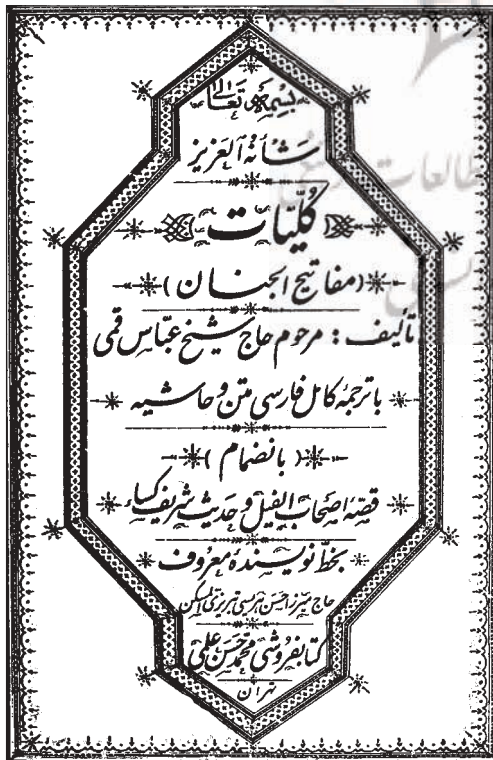 بسمه تعالی
شأنه العزیز
کلیّات
(مفاتیح الجنان)
تألیف: مرحوم حاج شیخ عباس قمی
با ترجمهٔ کامل فارسی متن و حاشیه
(بانضمام)
قصهٔ اصحاب الفیل و حدیث شریف کساء
بخط نویسندهٔ معروف
حاج میرزا حسن هریسی تبریزی
کتابفروشی محمد حسن علمی
تهران